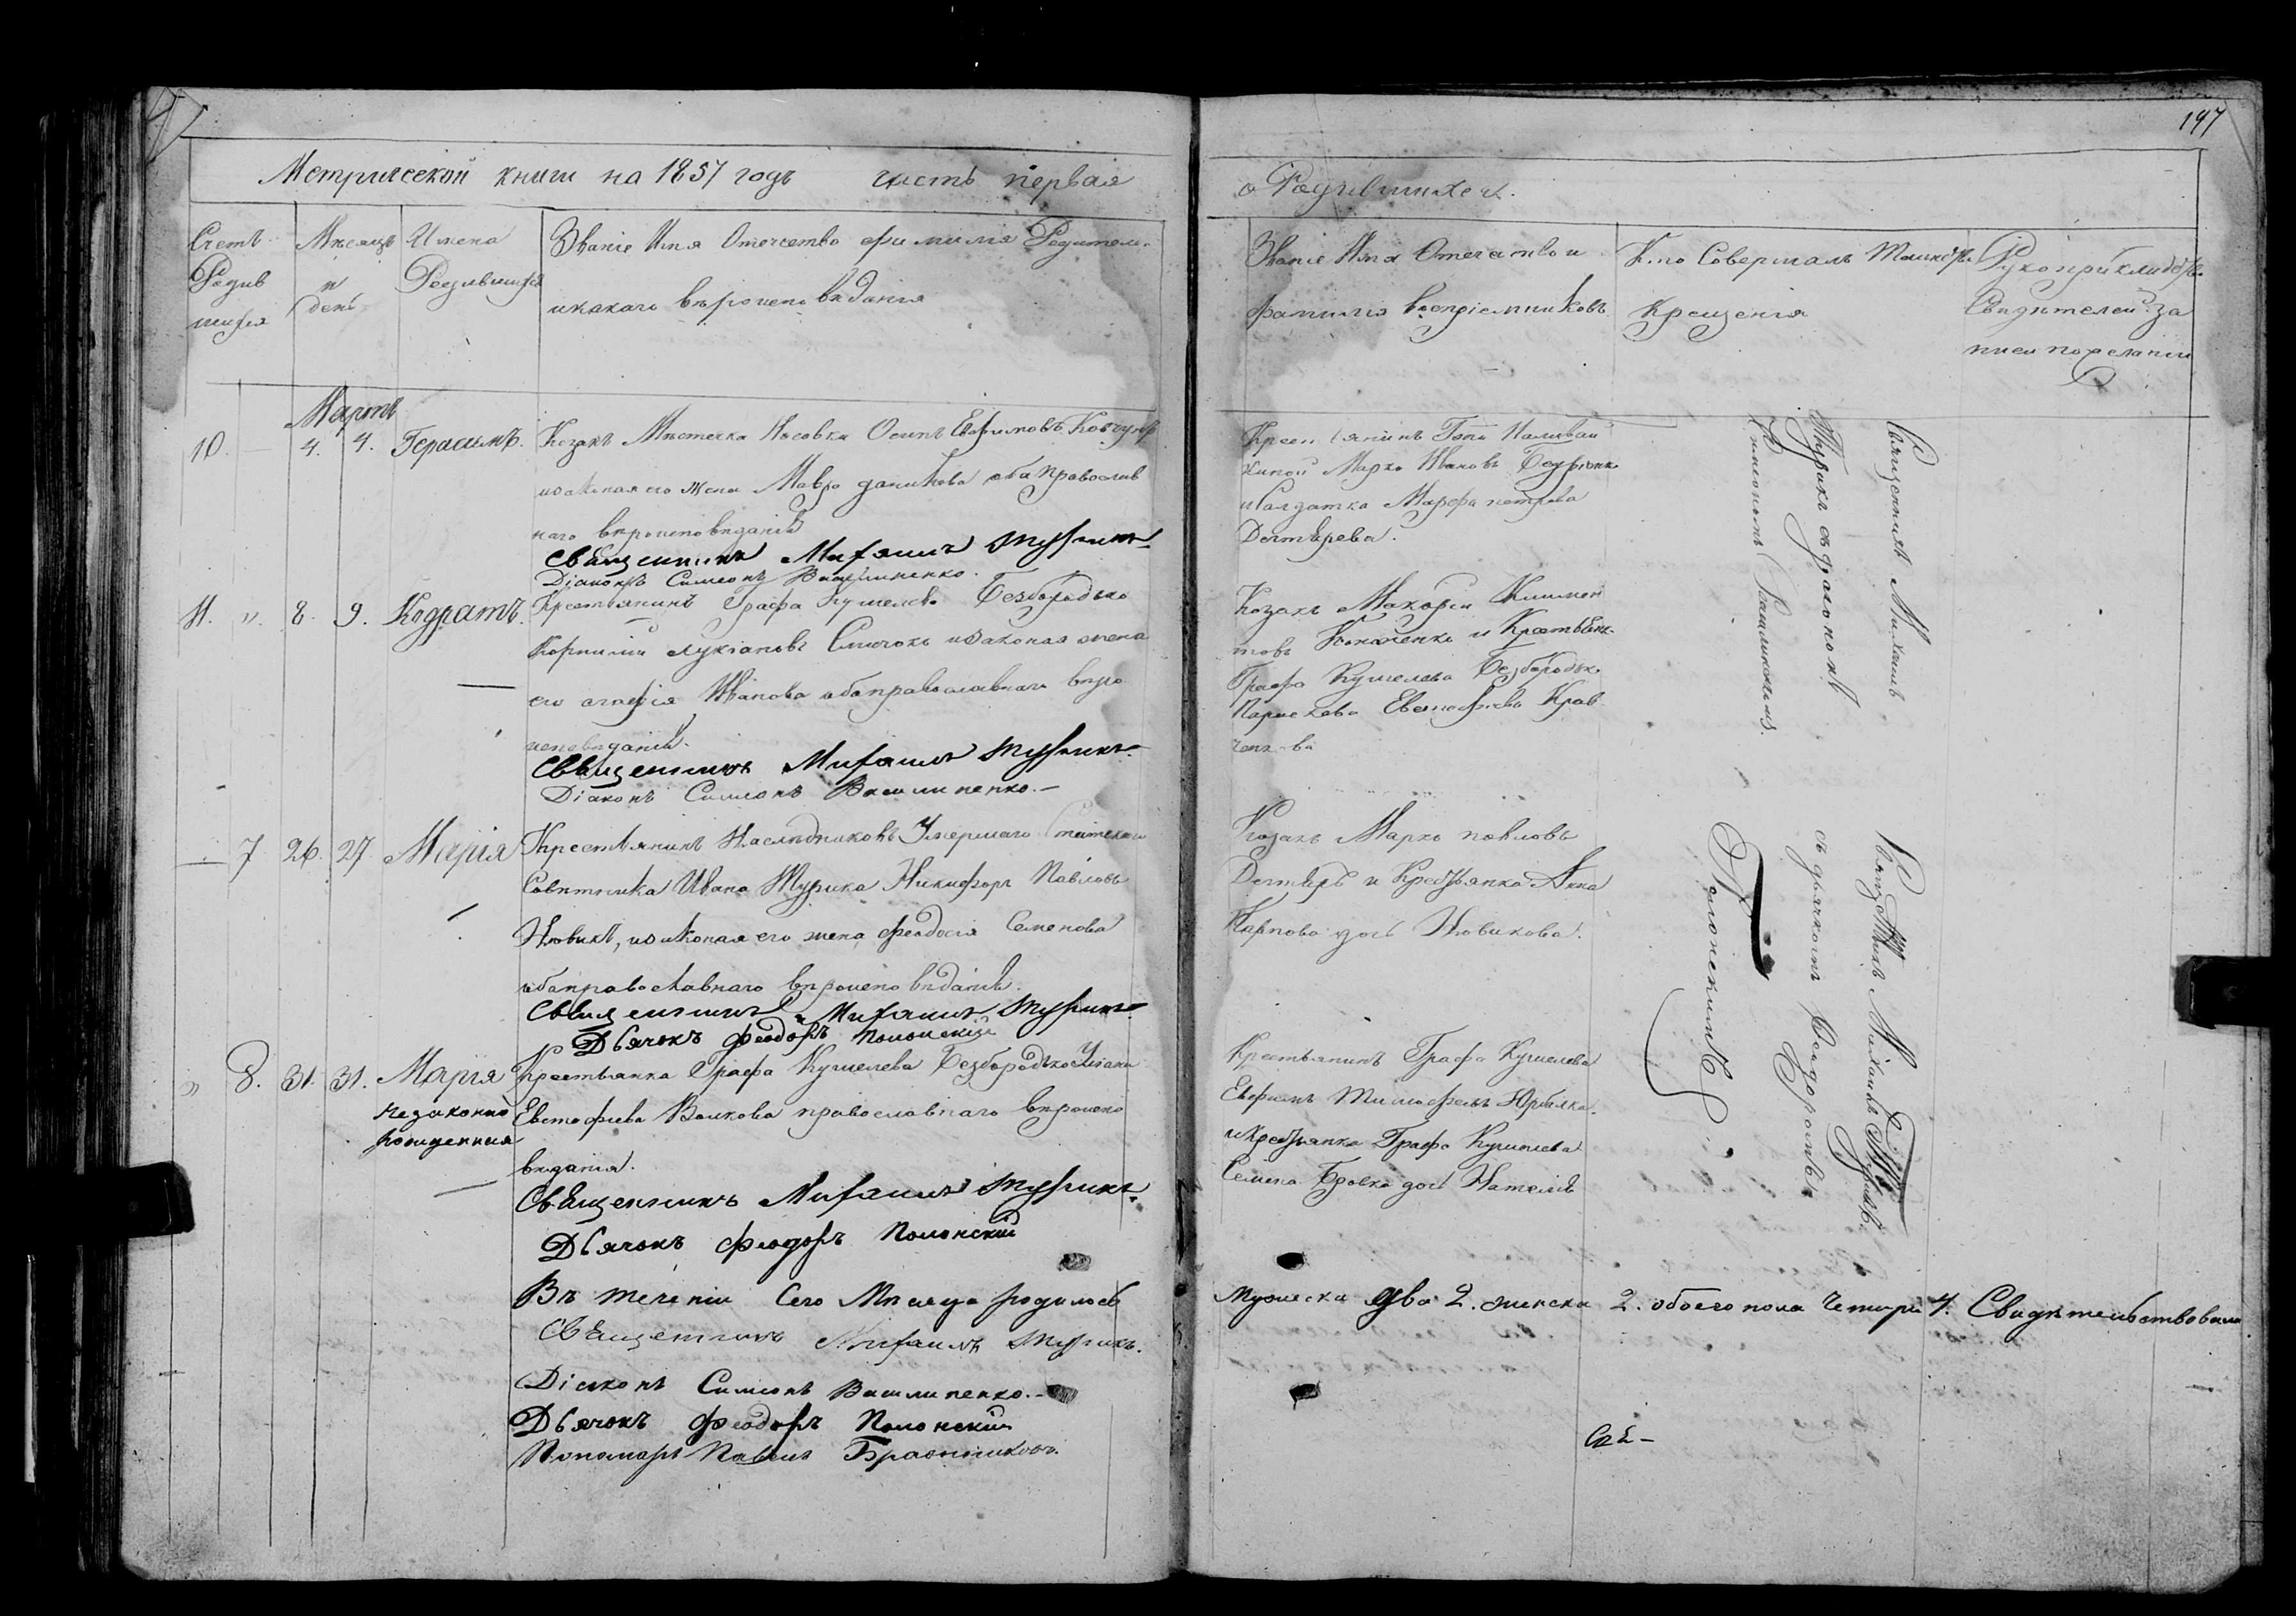 197
Метрической книги на 1857 годъ часть первая
о Родившихся.
Счетъ Родив шихся
Мѣсяцъ и день
Имена Родившихся
Званіе Имя Отечество фамилія Родителей
и какого вѣроисповѣданія
Званіе Имя Отечество и
фамилія воспріемниковъ
Кто Совершалъ Таинство
Крещенія
Рукоприкладство
Свидѣтелей за
писи по желанію
Мартъ
10. — 4. 4. Герасимъ.
Козакъ Мѣстечка Носовки Осипъ Евфимовъ
изаконная его жена Мавра данилова оба православ
наго вѣроисповѣданія
Священникъ Михаилъ Журикъ
Діаконъ Симеонъ Василиненко.
Марко Ивановъ
и Салдатка Марфа петрова
Дегтярева.
Священникъ Михаилъ
Журикъ съ діаконом
Симеономъ
11. „. 8. 9. Кодратъ.
Крестьянинъ Графа Кушелева Безбородька
Корнилій Лукіановъ Смичокъ изаконная жена
его агафія Иванова оба православнаго вѣро
исповѣданія.
Священникъ Михаилъ Журикъ
Діаконъ Симеонъ Василиненко.—
Козакъ Макарій Климен
товъ Кононенко и Крестьянк.
Графа Кушелева Безбородьк.
Параскева Евстафіева Крав
ченкова
— 7 26. 27 Марія
Крестьянинъ Наслѣдниковъ Умершаго Статскаго
Совѣтника Ивана Журика Никифоръ Павловъ
Новикъ, изаконная его жена феодосія Семенова
оба православнаго вѣроисповѣданія.
Священникъ Михаилъ Журикъ
Дьячокъ феодоръ Полонскій
Козакъ Марко павловъ
Дегтяръ и Крестьянка Анна
Карпова дочь Новикова.
Священникъ Михаилъ Журикъ.
съ дьячкомъ Феодоромъ
Полонскимъ
„ 8. 31. 31. Марія
незаконно
рожденная
Крестьянка Графа Кушелева Безбородька
Евстафіева Волкова православнаго вѣроиспо
вѣданія.
Священникъ Михаилъ Журикъ
Дьячокъ феодоръ Полонскій
Крестьянинъ Графа Кушелева
Евфимъ
и крестьянка Графа Кушелева
Семена дочь
Въ теченіи Сего Мѣсяца родилось
Мужеска два 2. женска 2. обоего пола Четыри 4. Свидѣтельствовали
Священникъ Михаилъ Журикъ.
Діаконъ Симеонъ Василиненко.—
Дьячокъ Феодоръ Полонскій
Пономарь Павелъ